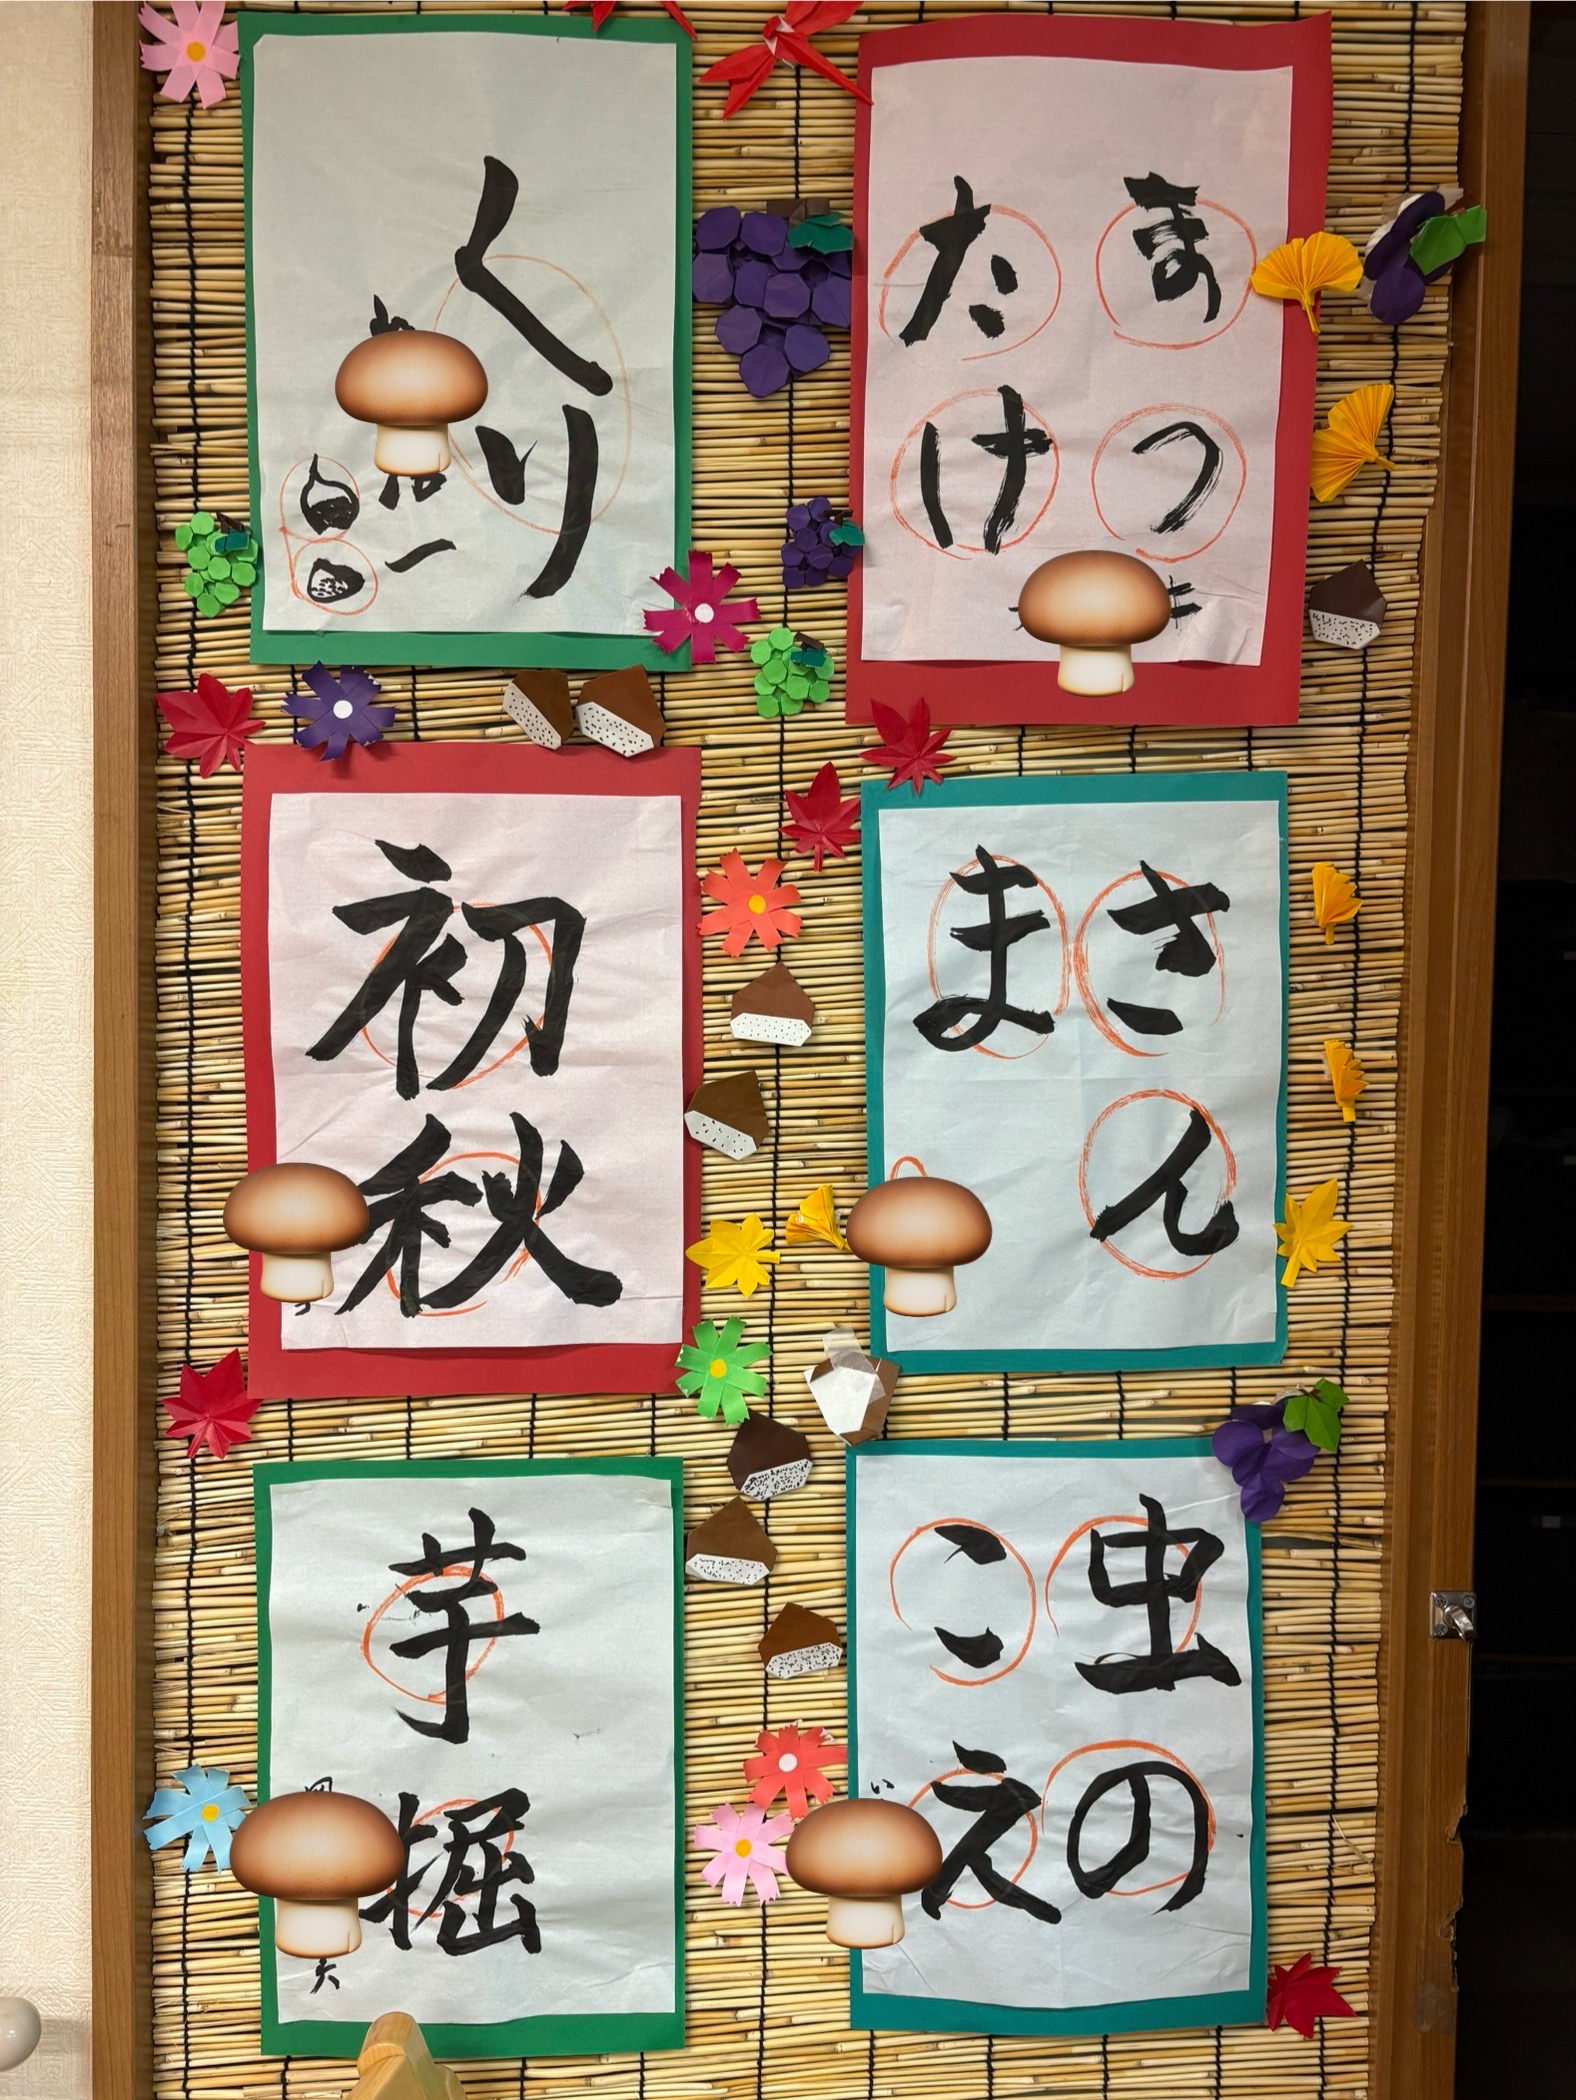 まつ
たけ
くり
さん
ま
初秋
虫の
こえ
芋掘